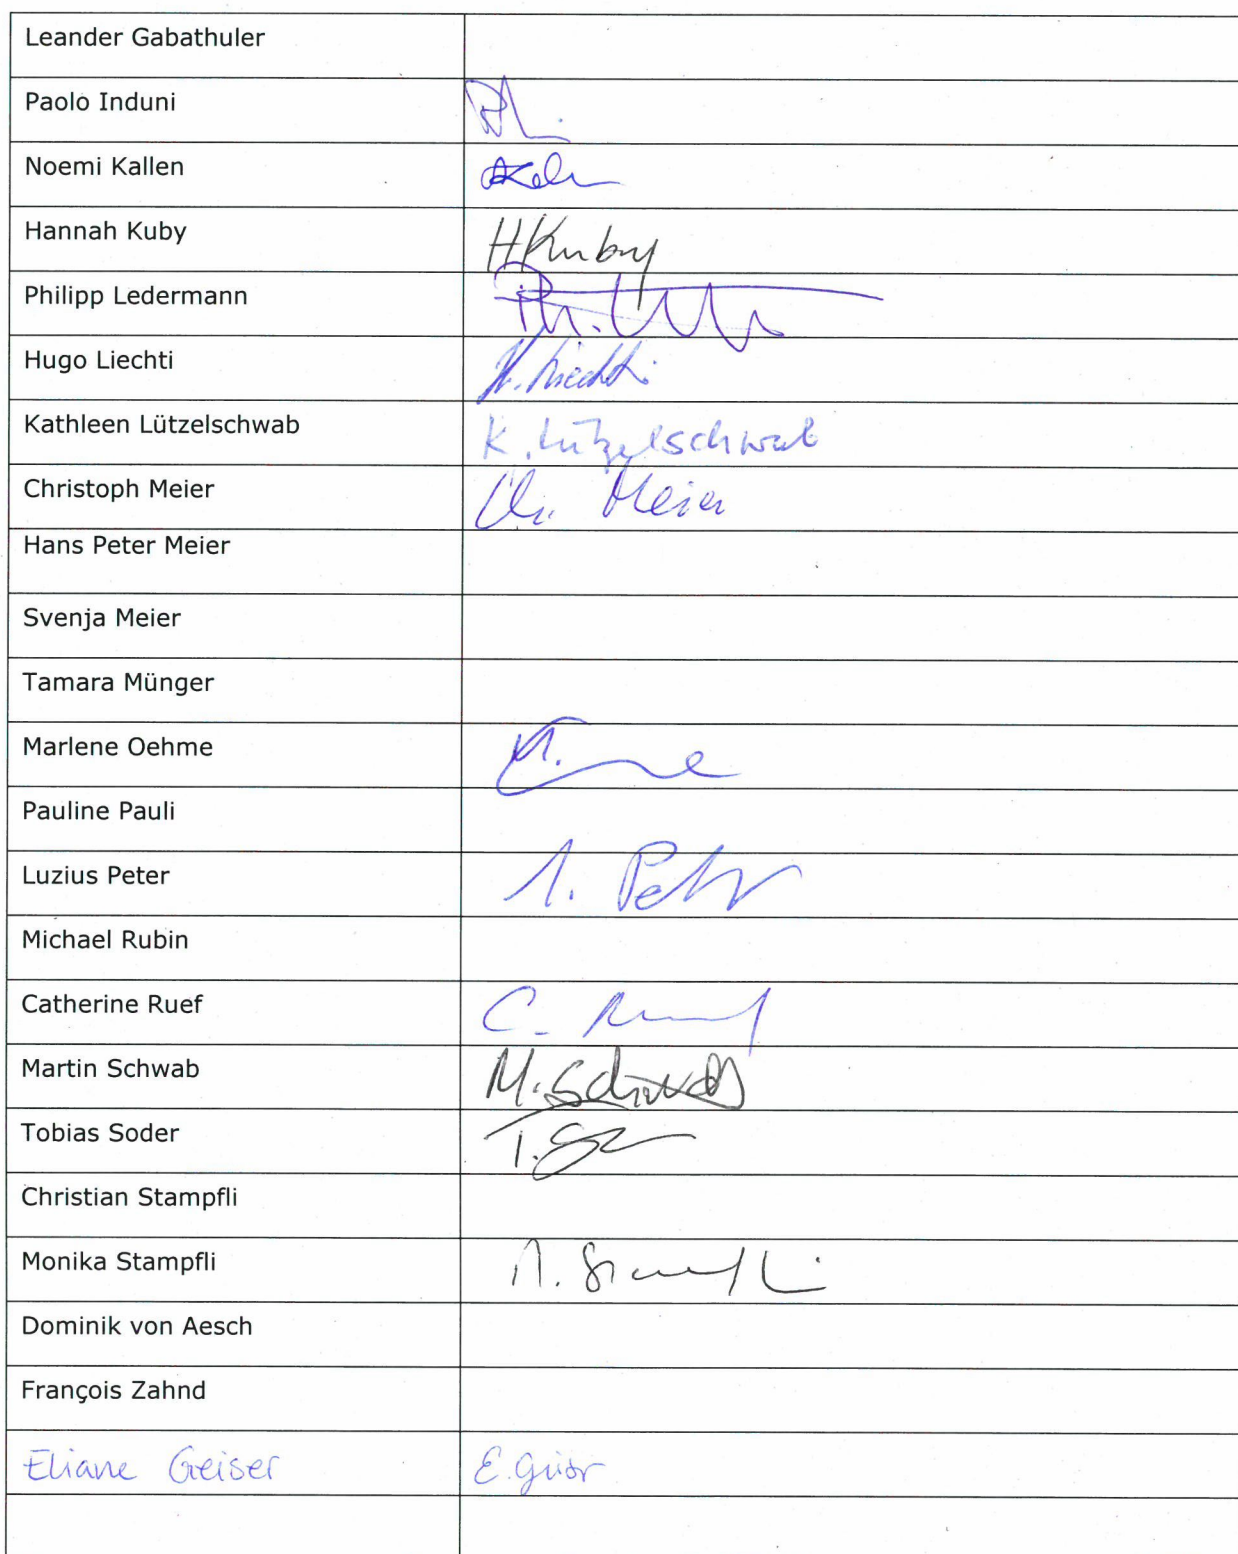 Leander Gabathuler
Paolo Induni
Noemi Kallen
Hannah Kuby HKuby
Philipp Ledermann
Hugo Liechti H. Liechti
Kathleen Lützelschwab K. Lützelschwab
Christoph Meier Ch. Meier
Hans Peter Meier
Svenja Meier
Tamara Münger
Marlene Oehme
Pauline Pauli
Luzius Peter L. Peter
Michael Rubin
Catherine Ruef C. Ruef
Martin Schwab M. Schwab
Tobias Soder
Christian Stampfli
Monika Stampfli M. Stampfli
Dominik von Aesch
François Zahnd
Eliane Geiser E. Geiser